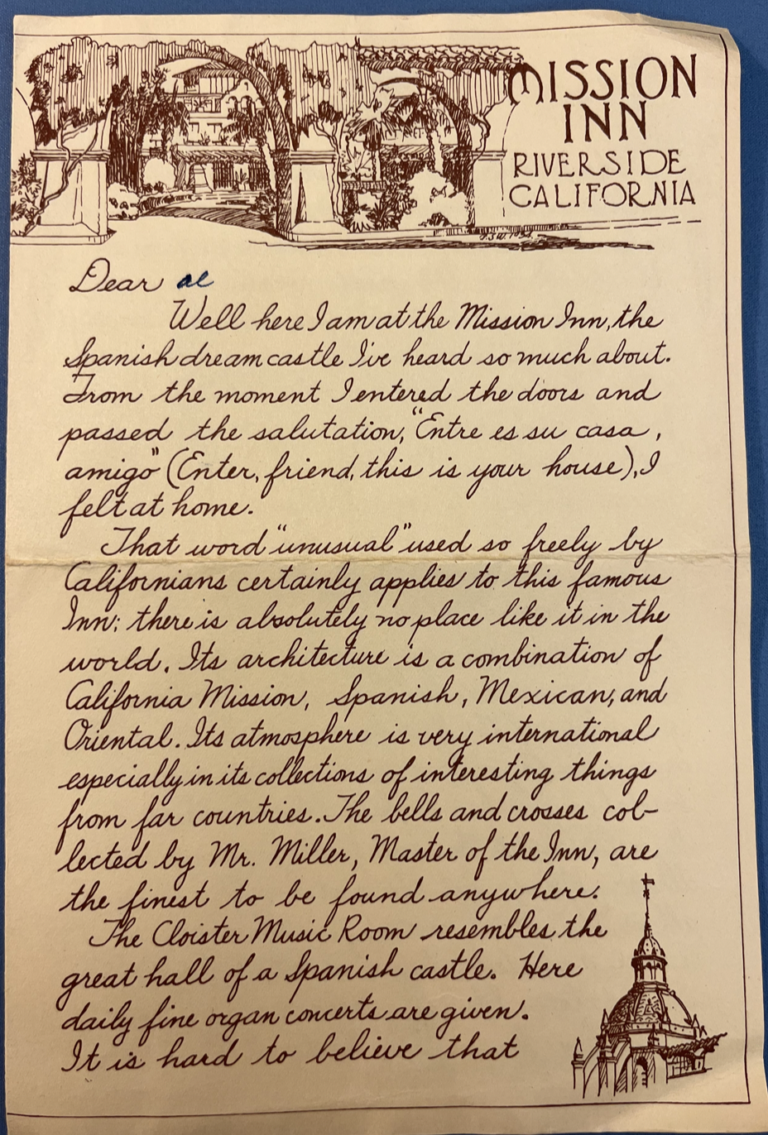 MISSION
INN
RIVERSIDE
CALIFORNIA
Dear al
Well here I am at the Mission Inn, the
Spanish dream castle I've heard so much about.
From the moment I entered the doors and
passed the salutation, "Entre es su casa,
amigo" (Enter, friend, this is your house), I
felt at home.
That word "unusual" used so freely by
Californians certainly applies to this famous
Inn: there is absolutely no place like it in the
world. Its architecture is a combination of
California Mission, Spanish, Mexican, and
Oriental. Its atmosphere is very international
especially in its collections of interesting things
from far countries. The bells and crosses col-
lected by Mr. Miller, Master of the Inn, are
the finest to be found anywhere.
The Cloister Music Room resembles the
great hall of a Spanish castle. Here
daily fine organ concerts are given.
It is hard to believe that